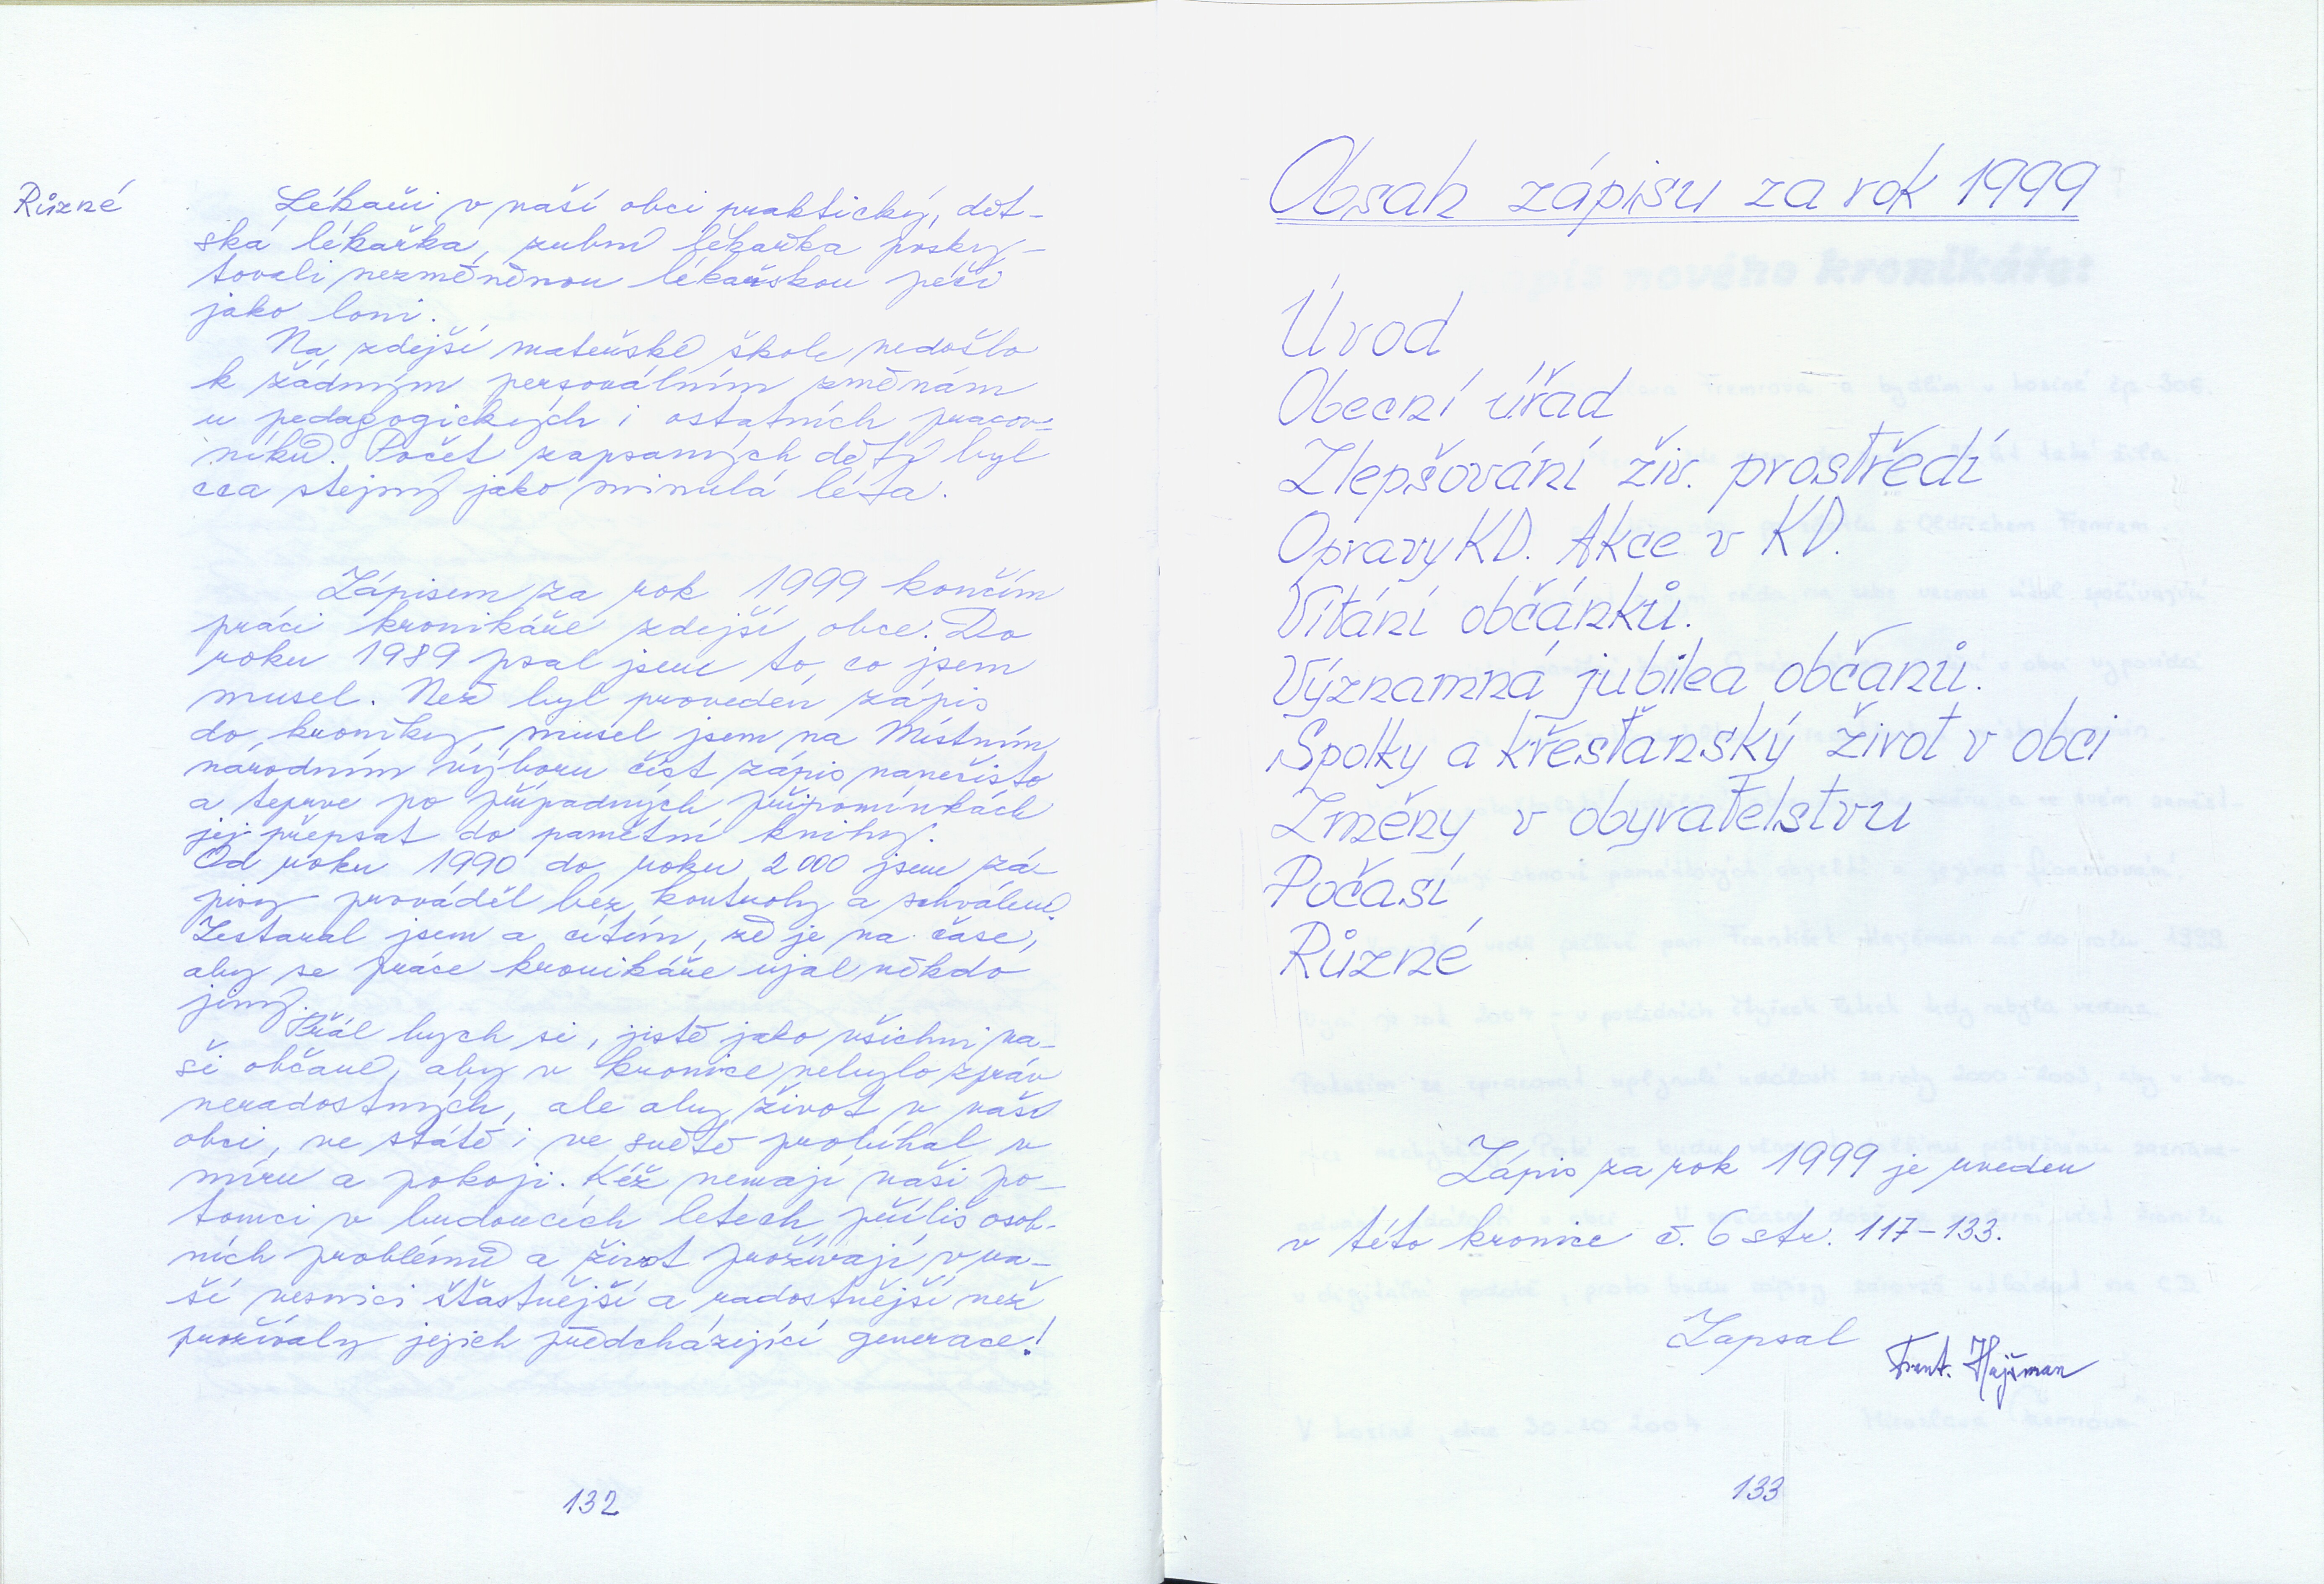 Různé
Lékaři v naší obci praktický, dět-
ská lékařka, zubní lékařka posky-
tovali nezměněnou lékařskou péči
jako loni.
Na zdejší mateřské škole nedošlo
k žádným personálním změnám
u pedagogických i ostatních pracov-
níků. Počet zapsaných dětí byl
cca stejný jako minulá léta.
Zápisem za rok 1999 končím
práci kronikáře zdejší obce. Do
roku 1989 psal jsem to, co jsem
musel. Než byl proveden zápis
do kroniky, musel jsem na Místním
národním výboru číst zápis nanečisto
a teprve po případných připomínkách
jej přepsat do pamětní knihy.
Od roku 1990 do roku 2000 jsem zá-
pisy prováděl bez kontroly a schválení.
Zestaral jsem a cítím, že je na čase,
aby se práce kronikáře ujal někdo
jiný.
Přál bych si, jistě jako všichni na-
ši občané, aby v kronice nebylo zpráv
neradostných, ale aby život v naší
obci, ve státě i ve světě probíhal v
míru a pokoji. Kéž nemají naši po-
tomci v budoucích letech příliš osob-
ních problémů a život prožívají v na-
ší vesnici šťastnější a radostnější než
prožívaly jejich předcházející generace!
132
Obsah zápisu za rok 1999
Úvod
Obecní úřad
Zlepšování živ. prostředí
Opravy KD. Akce v KD.
Vítání občánků.
Významná jubilea občanů.
Spolky a křesťanský život v obci
Změny v obyvatelstvu
Počasí
Různé
Zápis za rok 1999 je uveden
v této kronice č. 6 str. 117-133.
Zapsal
Frant. Hajšman
133